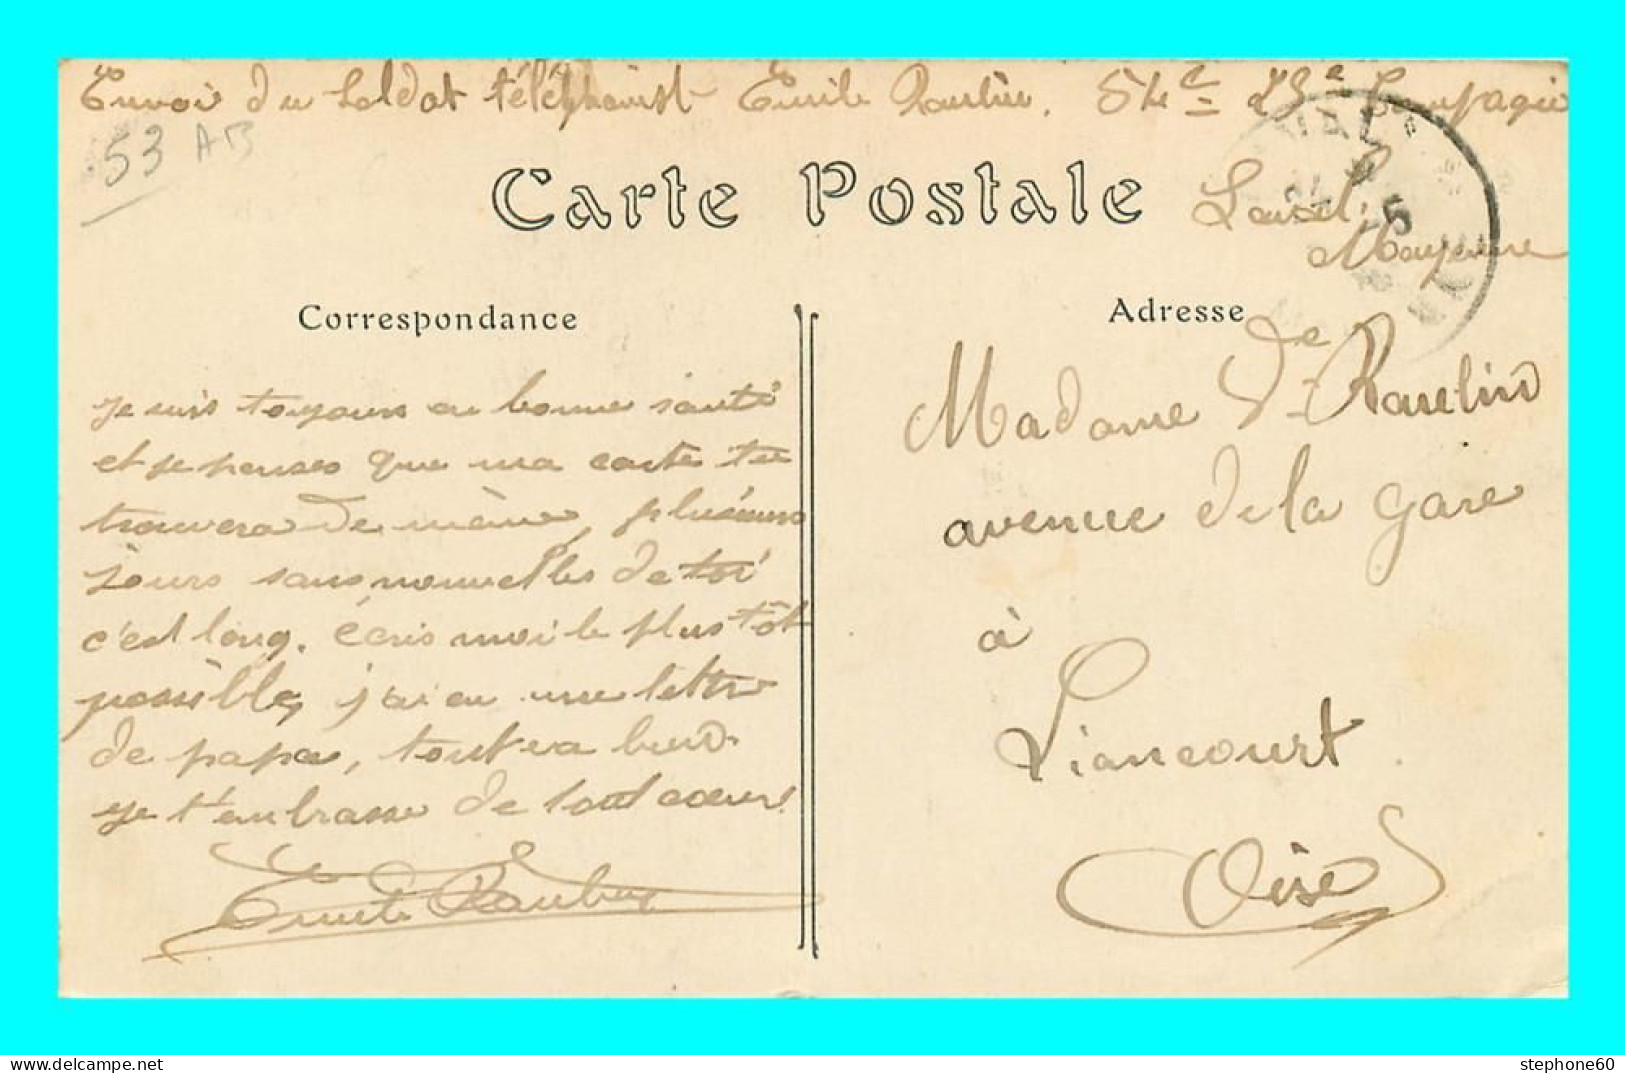 Envoi du soldat téléphonist Emile Raulin. 54e 23e Compagie
53 AB
Laval,
Mayenne
LAVAL
5
Carte Postale
Correspondance
Adresse
je suis toujours en bonne santé
et je penses que ma carte te
trouvera de même, plusieurs
jours sans nouvelles de toi
c'est long. écris moi le plus tôt
possible, j'ai eu une lettre
de papa, tout va bien.
je t'embrasse de tout cœur.
Emile Raulin
Madame Vve Raulin
avenue de la gare
à
Liancourt.
Oise
stephone60